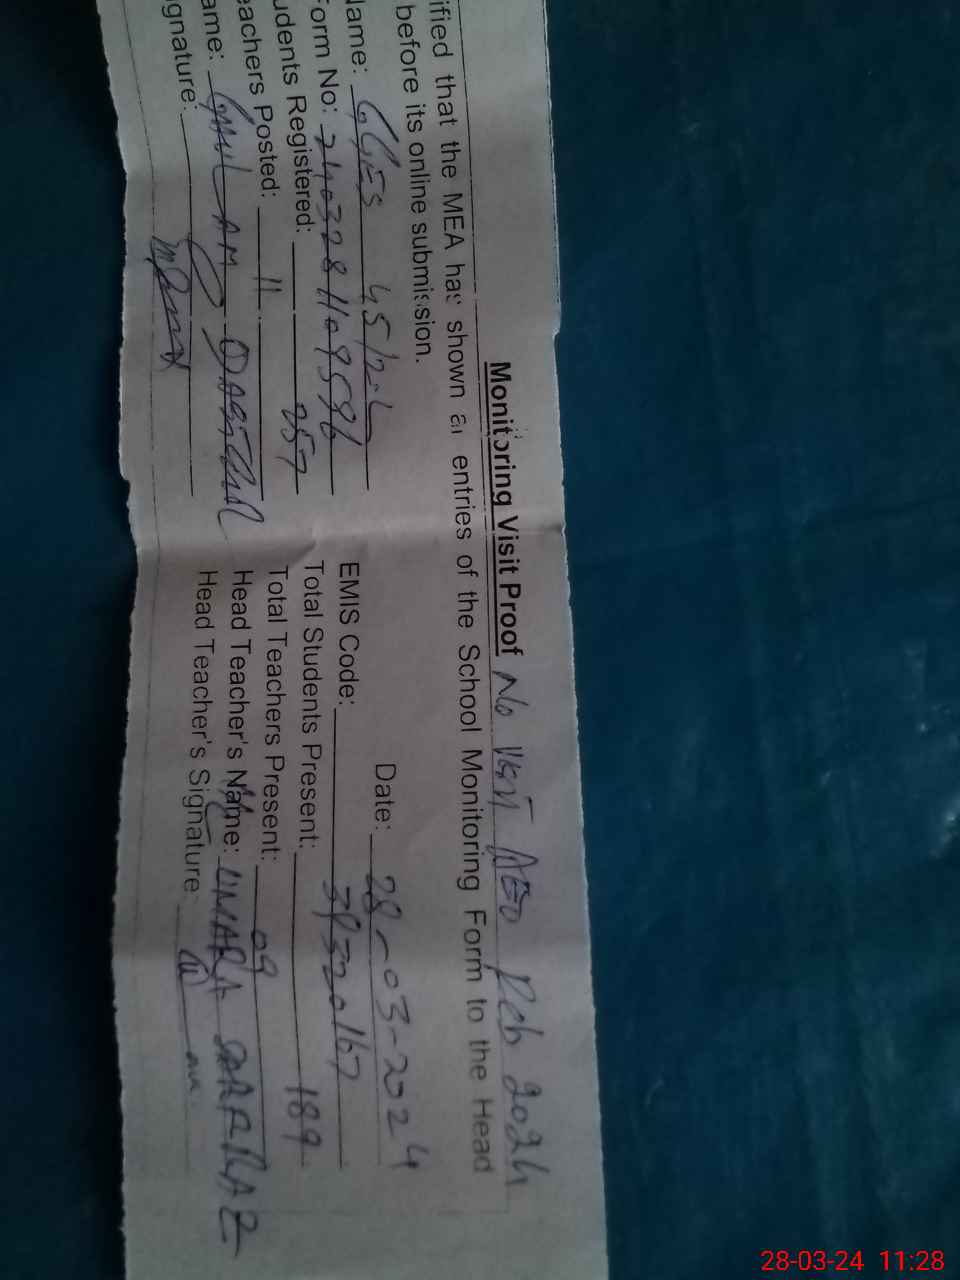 Monitoring Visit Proof No Visit AEO Feb 2024
ified that the MEA has shown all entries of the School Monitoring Form to the Head
before its online submission.
Date: 28-03-2024
lame: GGES 45/2-L EMIS Code: 39320167
orm No: 2403281109596 Total Students Present: 189
udents Registered: 257 Total Teachers Present: 09
eachers Posted: 11 Head Teacher's Name: UMARA SARFRAZ
ame: GHULAM DASTGIR Head Teacher's Signature:
ignature:
28-03-24 11:28